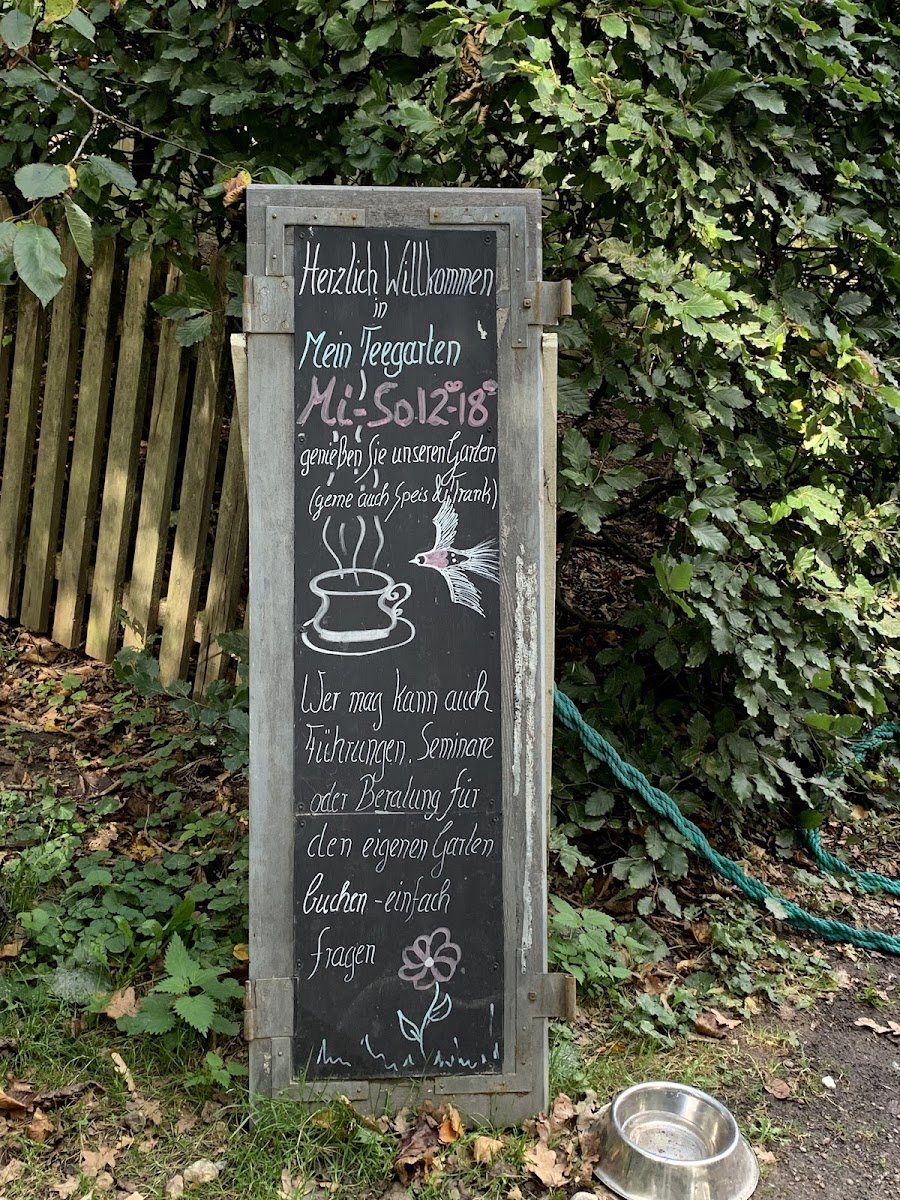 Herzlich Willkommen
in
Mein Teegarten
Mi-So 12°°-18°°
genießen Sie unseren Garten
(gerne auch Speis & Trank)
Wer mag kann auch
Führungen, Seminare
oder Beratung für
den eigenen Garten
buchen - einfach
fragen